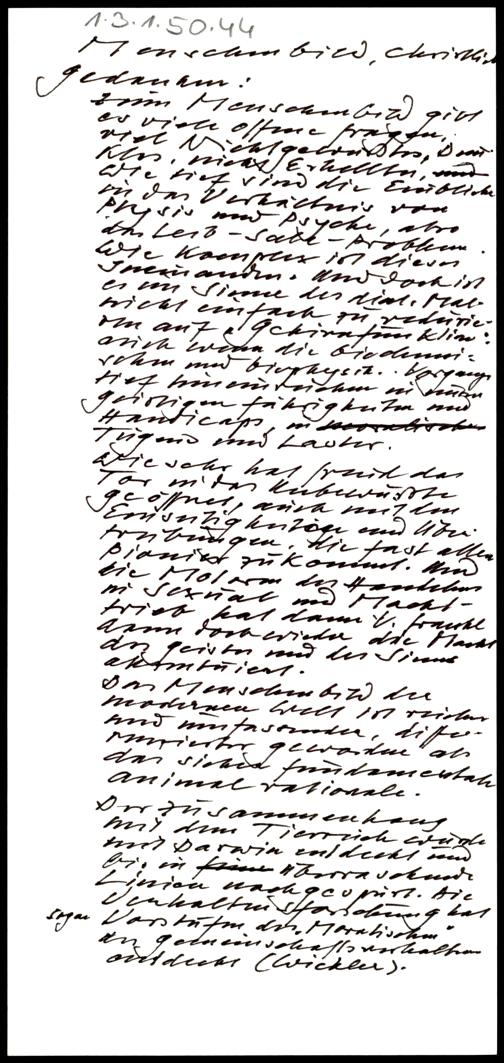 1.3.1.50.44
Menschenbild, christlich
Gedanken:
Zum Menschenbild gibt
es viele offene Fragen,
viel Nichtgewußtes, Dun-
kles, nicht Erhelltes, und
wie tief sind die Einblicke
in das Verhältnis von
Physis und Psyche, also
das Leib-Seele-Problem.
Wie komplex ist dieses
Ineinander. Und doch ist
es im Sinne des Mat-
nicht einfach zu reduzie-
ren auf "Gehirnfunktion".
auch wenn die biochemi-
schen und biophysik. Vorgänge
tief hineinreichen in
geistigen Fähigkeiten und
Handicaps, in moralischen
Tugend und Laster.
Wie sehr hat Freud das
Tor in das Unbewußte
geöffnet, auch mit den
Einseitigkeiten und Über-
treibungen, die fast allen
Pionier zukommt. Und
die Motoren des Handelns
in Sexual und Macht-
trieb hat dann V. Frankl
dann doch wieder die Macht
des Geistes und des Sinns
akzentuiert.
Das Menschenbild der
modernen Welt ist reicher
und umfassender, diffe-
renzierter geworden als
das sicher fundamentale
animal rationale.
Der Zusammenhang
mit dem Tierreich wurde
mit Darwin entdeckt und
bis in feine überraschende
Linien nachgespürt. Die
Verhaltensforschung hat
sogar Vorstufen des "Moralischen"
des Gemeinschaftsverhaltens
entdeckt (Wickler).